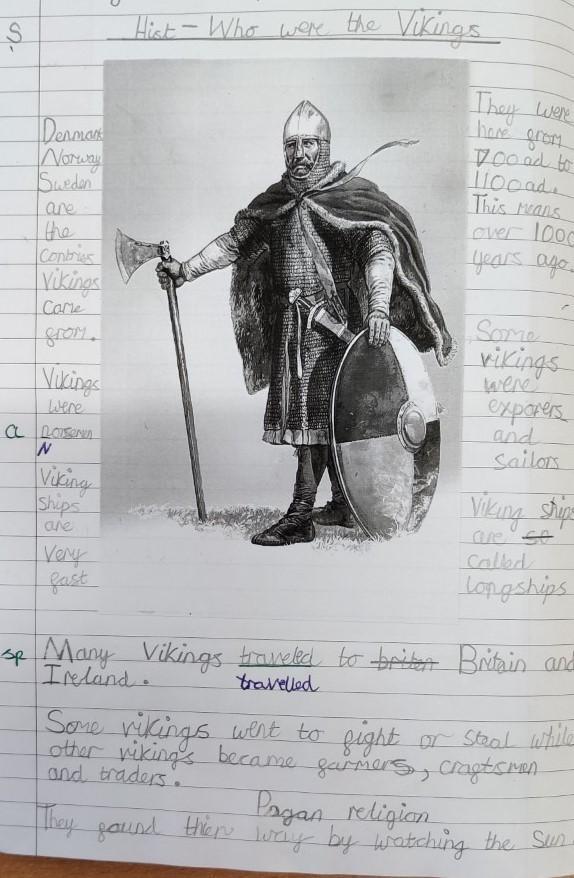 S
Hist - Who were the Vikings
Denmark
Norway
Sweden
are
the
Contries
Vikings
Came
from.
Vikings
were
a norsemen
N
Viking
Ships
are
Very
fast
They were
here from
700ad to
1100ad.
This means
over 1000
years ago.
Some
vikings
were
exporers
and
Sailors
Viking ships
are so
called
longships
sp Many Vikings traveled to briten Britain and
Ireland. travelled
Some vikings went to fight or steal while
other vikings became farmers, craftsmen
and traders.
Pagan religion
They found thier way by watching the Sun